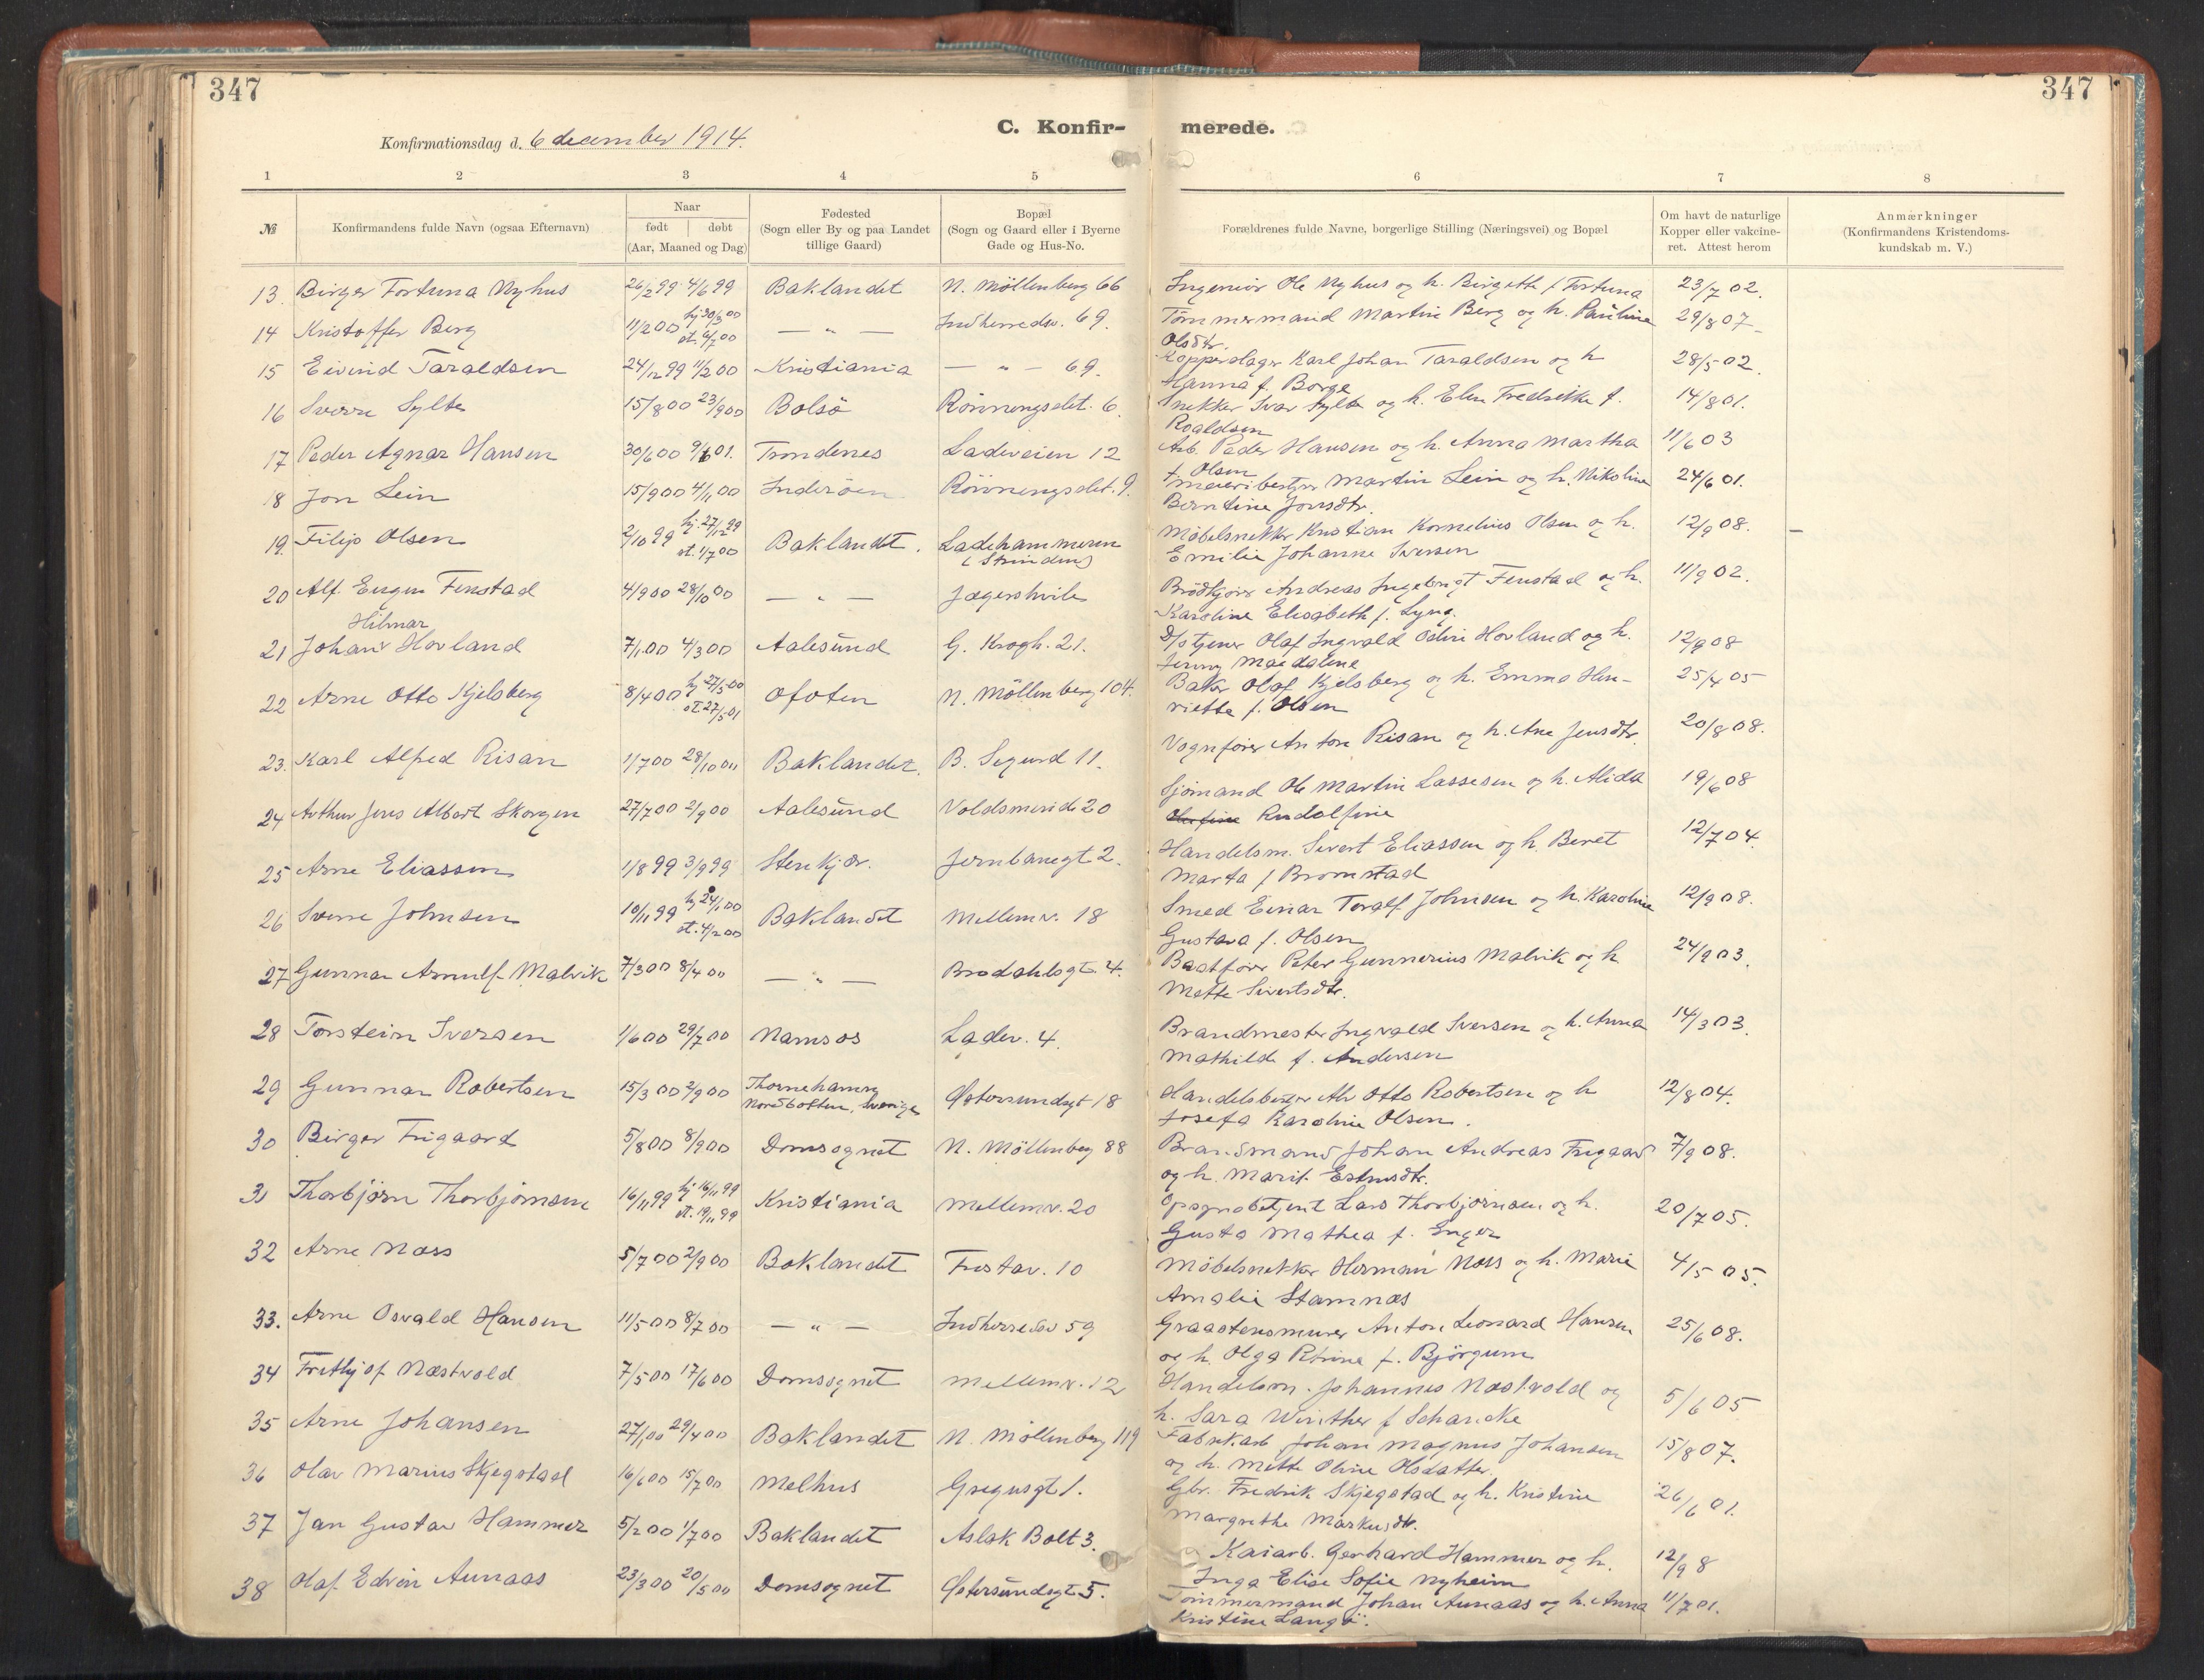 347
347
C. Konfir-
merede.
Konfirmationsdag d. 6 december 1914.
1 2 3 4 5 6 7 8
№
Konfirmandens fulde Navn (ogsaa Efternavn)
Naar
født | døbt
(Aar, Maaned og Dag)
Fødested
(Sogn eller By og paa Landet
tillige Gaard)
Bopæl
(Sogn og Gaard eller i Byerne
Gade og Hus-No.
Forældrenes fulde Navne, borgerlige Stilling (Næringsvei) og Bopæl
Om havt de naturlige
Kopper eller vakcine-
ret. Attest herom
Anmærkninger
(Konfirmandens Kristendoms-
kundskab m. V.)
13. Birger Fortuna Nyhus 26/2 99 4/6 99 Baklandet N. Möllenberg 66 Ingeniør Ole Nyhus og h. Birgette f. Fortuna 23/7 02.
14 Kristoffer Berg 11/2 00 hj 30/3 00 st. 6/7 00 — " — Indherredsv. 69. Tömmermand Martin Berg og h. Pauline 29/8 07
Olsdtr.
15 Eivind Taraldsen 24/12 99 11/2 00 Kristiania — " — 69. Kopperslager Karl Johan Taraldsen og h 28/5 02.
Hanna f. Borge
16 Sverre Sylte 15/8 00 23/9 00 Bolsö Rönningsslet. 6. Snekker Ivar Sylte og h. Elen Fredrikke f. 14/8 01.
Roaldsen
17 Peder Agnar Hansen 30/6 00 9/6 01. Trondenes Ladeveien 12 Arb. Peder Hansen og h. Anna Martha 11/6 03
f. Olsen
18 Jon Lein 15/9 00 4/11 00 Inderöen Rönningsslet. 9. Meieribestyrer Martin Lein og h. Nikoline 24/6 01.
Berntine Jonsdtr.
19. Filip Olsen 2/10 99 hj. 27/12 99 st. 1/7 00 Baklandet. Ladehammeren Möbelsnekker Kristian Kornelius Olsen og h. 12/9 08.
(Strinden) Emilie Johanne Iversen
20 Alf Eugen Fenstad 4/9 00 28/10 00 — " — Jægershvile Brödkjörer Andreas Ingebrigt Fenstad og h. 11/9 02.
Karoline Elisabeth f. Lyng.
Hilmar
21 Johan Hovland 7/1 00 4/3 00 Aalesund G. Krogh. 21. D/stjener Olaf Ingvald Odin Hovland og h. 12/9 08
Jenny Magdalene
22 Arne Otto Kjelsberg 8/4 00 hj 27/5 00 st 27/5 01 Ofoten N. Möllenberg 104. Baker Olaf Kjelsberg og h. Emma Hen- 25/4 05
riette f. Olsen
23. Karl Alfred Risan 1/7 00 28/10 00 Baklandet. B. Sigurd 11. Vognfører Anton Risan og h. Ane Jensdtr. 20/8 08.
24 Arthur Jens Albert Skorgen 27/7 00 2/9 00 Aalesund Voldsminde 20 Sjömand Ole Martin Lassesen og h. Alida 19/6 08
Rudolfine
25 Arne Eliassen 1/8 99 3/9 99 Stenkjær. Jernbanegt 2. Handelsm. Sivert Eliassen og h. Beret 12/7 04.
Marta f Bromstad
26 Sverre Johnsen 10/11 99 hj 24/1 00 st. 4/2 00 Baklandet Mellemv. 18 Smed Einar Toralf Johnsen og h. Karoline 12/9 08.
Gustava f. Olsen
27 Gunnar Arnulf Malvik 7/3 00 8/4 00 — " — Brodahlsgt. 4. Baatförer Peter Gunnerius Malvik og h 24/9 03.
Mette Sivertsdtr.
28 Torstein Iversen 1/6 00 29/7 00 Namsos Ladev. 4. Brandmester Ingvald Iversen og h. Anna 14/3 03.
Mathilde f. Andersen
29 Gunnar Robertsen 15/3 00 2/9 00 Thornehamn Nordbotten, Sverige Østersundsgt 18 Handelsborger Alv Otto Robertsen og h 12/8 04.
Josefa Karoline Olsen.
30 Birger Frigaard 5/8 00 8/9 00 Domsognet N. Möllenberg 88 Brandmand Johan Andreas Frigaard 7/9 08.
og h. Marit Estensdtr.
31 Thorbjörn Thorbjörnsen 16/11 99 hj 16/11 99 st. 19/11 99 Kristiania Mellemv. 20 Opsynsbetjent Lars Thorbjörnsen og h. 20/7 05.
Gusta Mathea f. Enger
32 Arne Næss 5/7 00 2/9 00 Baklandet Frostav. 10 Möbelsnekker Herman Næss og h. Marie 4/5 05.
Amalie Stamnæs
33. Arne Osvald Hansen 11/5 00 8/7 00 — " — Indherredsv 59 Graastensmurer Anton Leonard Hansen 25/6 08.
og h. Olga Petrine f. Björgum
34 Frithjof Næstvold 7/5 00 17/6 00 Domsognet Mellemv. 12 Handelsm. Johannes Næstvold og 5/6 05
h. Sara Winther f Schancke
35 Arne Johansen 27/1 00 29/4 00 Baklandet N. Möllenberg 119 Fabrikarb Johan Magnus Johansen 15/8 07.
og h. Mette Oline Olsdatter.
36 Olav Marius Skjegstad 16/6 00 15/7 00 Melhus Gregusgt 1. Gbr. Fredrik Skjegstad og h. Kristine 26/6 01.
Margrethe Markusdtr.
37 Jan Gustav Hammer 5/2 00 1/7 00 Baklandet Aslak Bolt 3. Kaiarb. Gerhard Hammer og h. 12/9 8
Inga Elise Sofie Nyheim
38 Olaf Edvin Aunaas 23/3 00 20/5 00 Domsognet Østersundsgt 5. Tömmermand Johan Aunaas og h. Anna 11/7 01.
Kristine Langö.